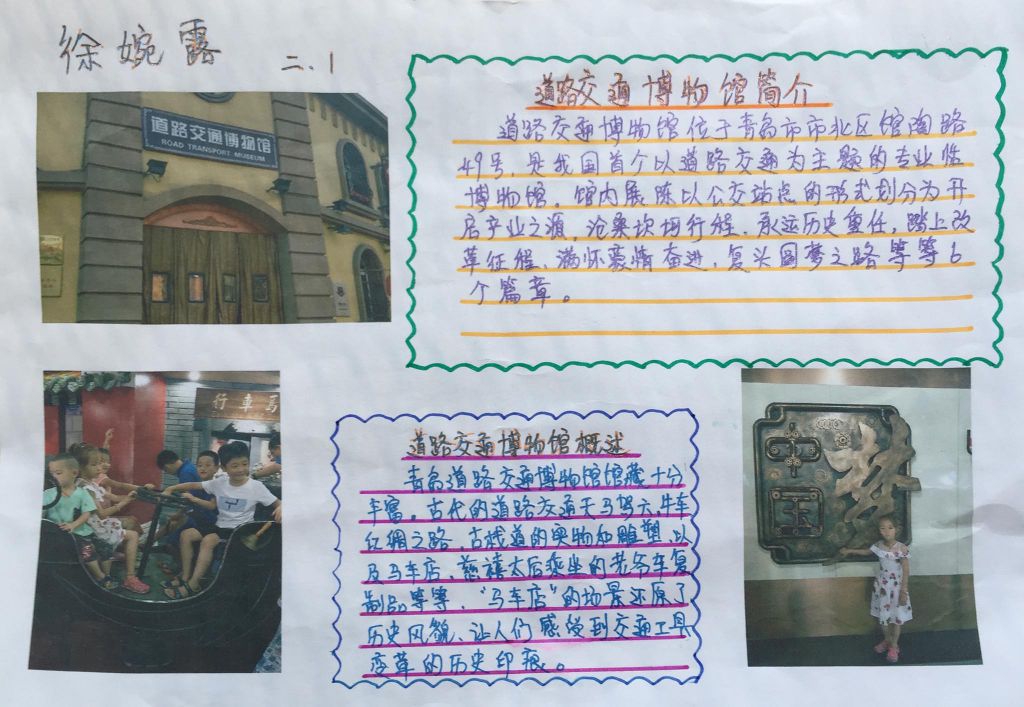 徐婉露 二、1
道路交通博物馆
ROAD TRANSPORT MUSEUM
道路交通博物馆简介
道路交通博物馆位于青岛市市北区馆陶路
49号,是我国首个以道路交通为主题的专业性
博物馆。馆内展陈以公交站点的形式划分为开
启产业之源,沧桑坎坷行程、承运历史重任,踏上改
革征程、满怀豪情奋进、复兴圆梦之路等等6
个篇章。
馬車行
道路交通博物馆概述
青岛道路交通博物馆馆藏十分
丰富。古代的道路交通天马驾六,牛车
红绸之路,古栈道的实物和雕塑,以
及马车店、慈禧太后乘坐的老爷车复
制品等等,“马车店”的场景还原了
历史风貌、让人们感受到交通工具
变革的历史印痕。